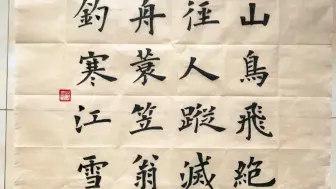 山鳥飛絶
徑人蹤滅
舟蓑笠翁
釣寒江雪